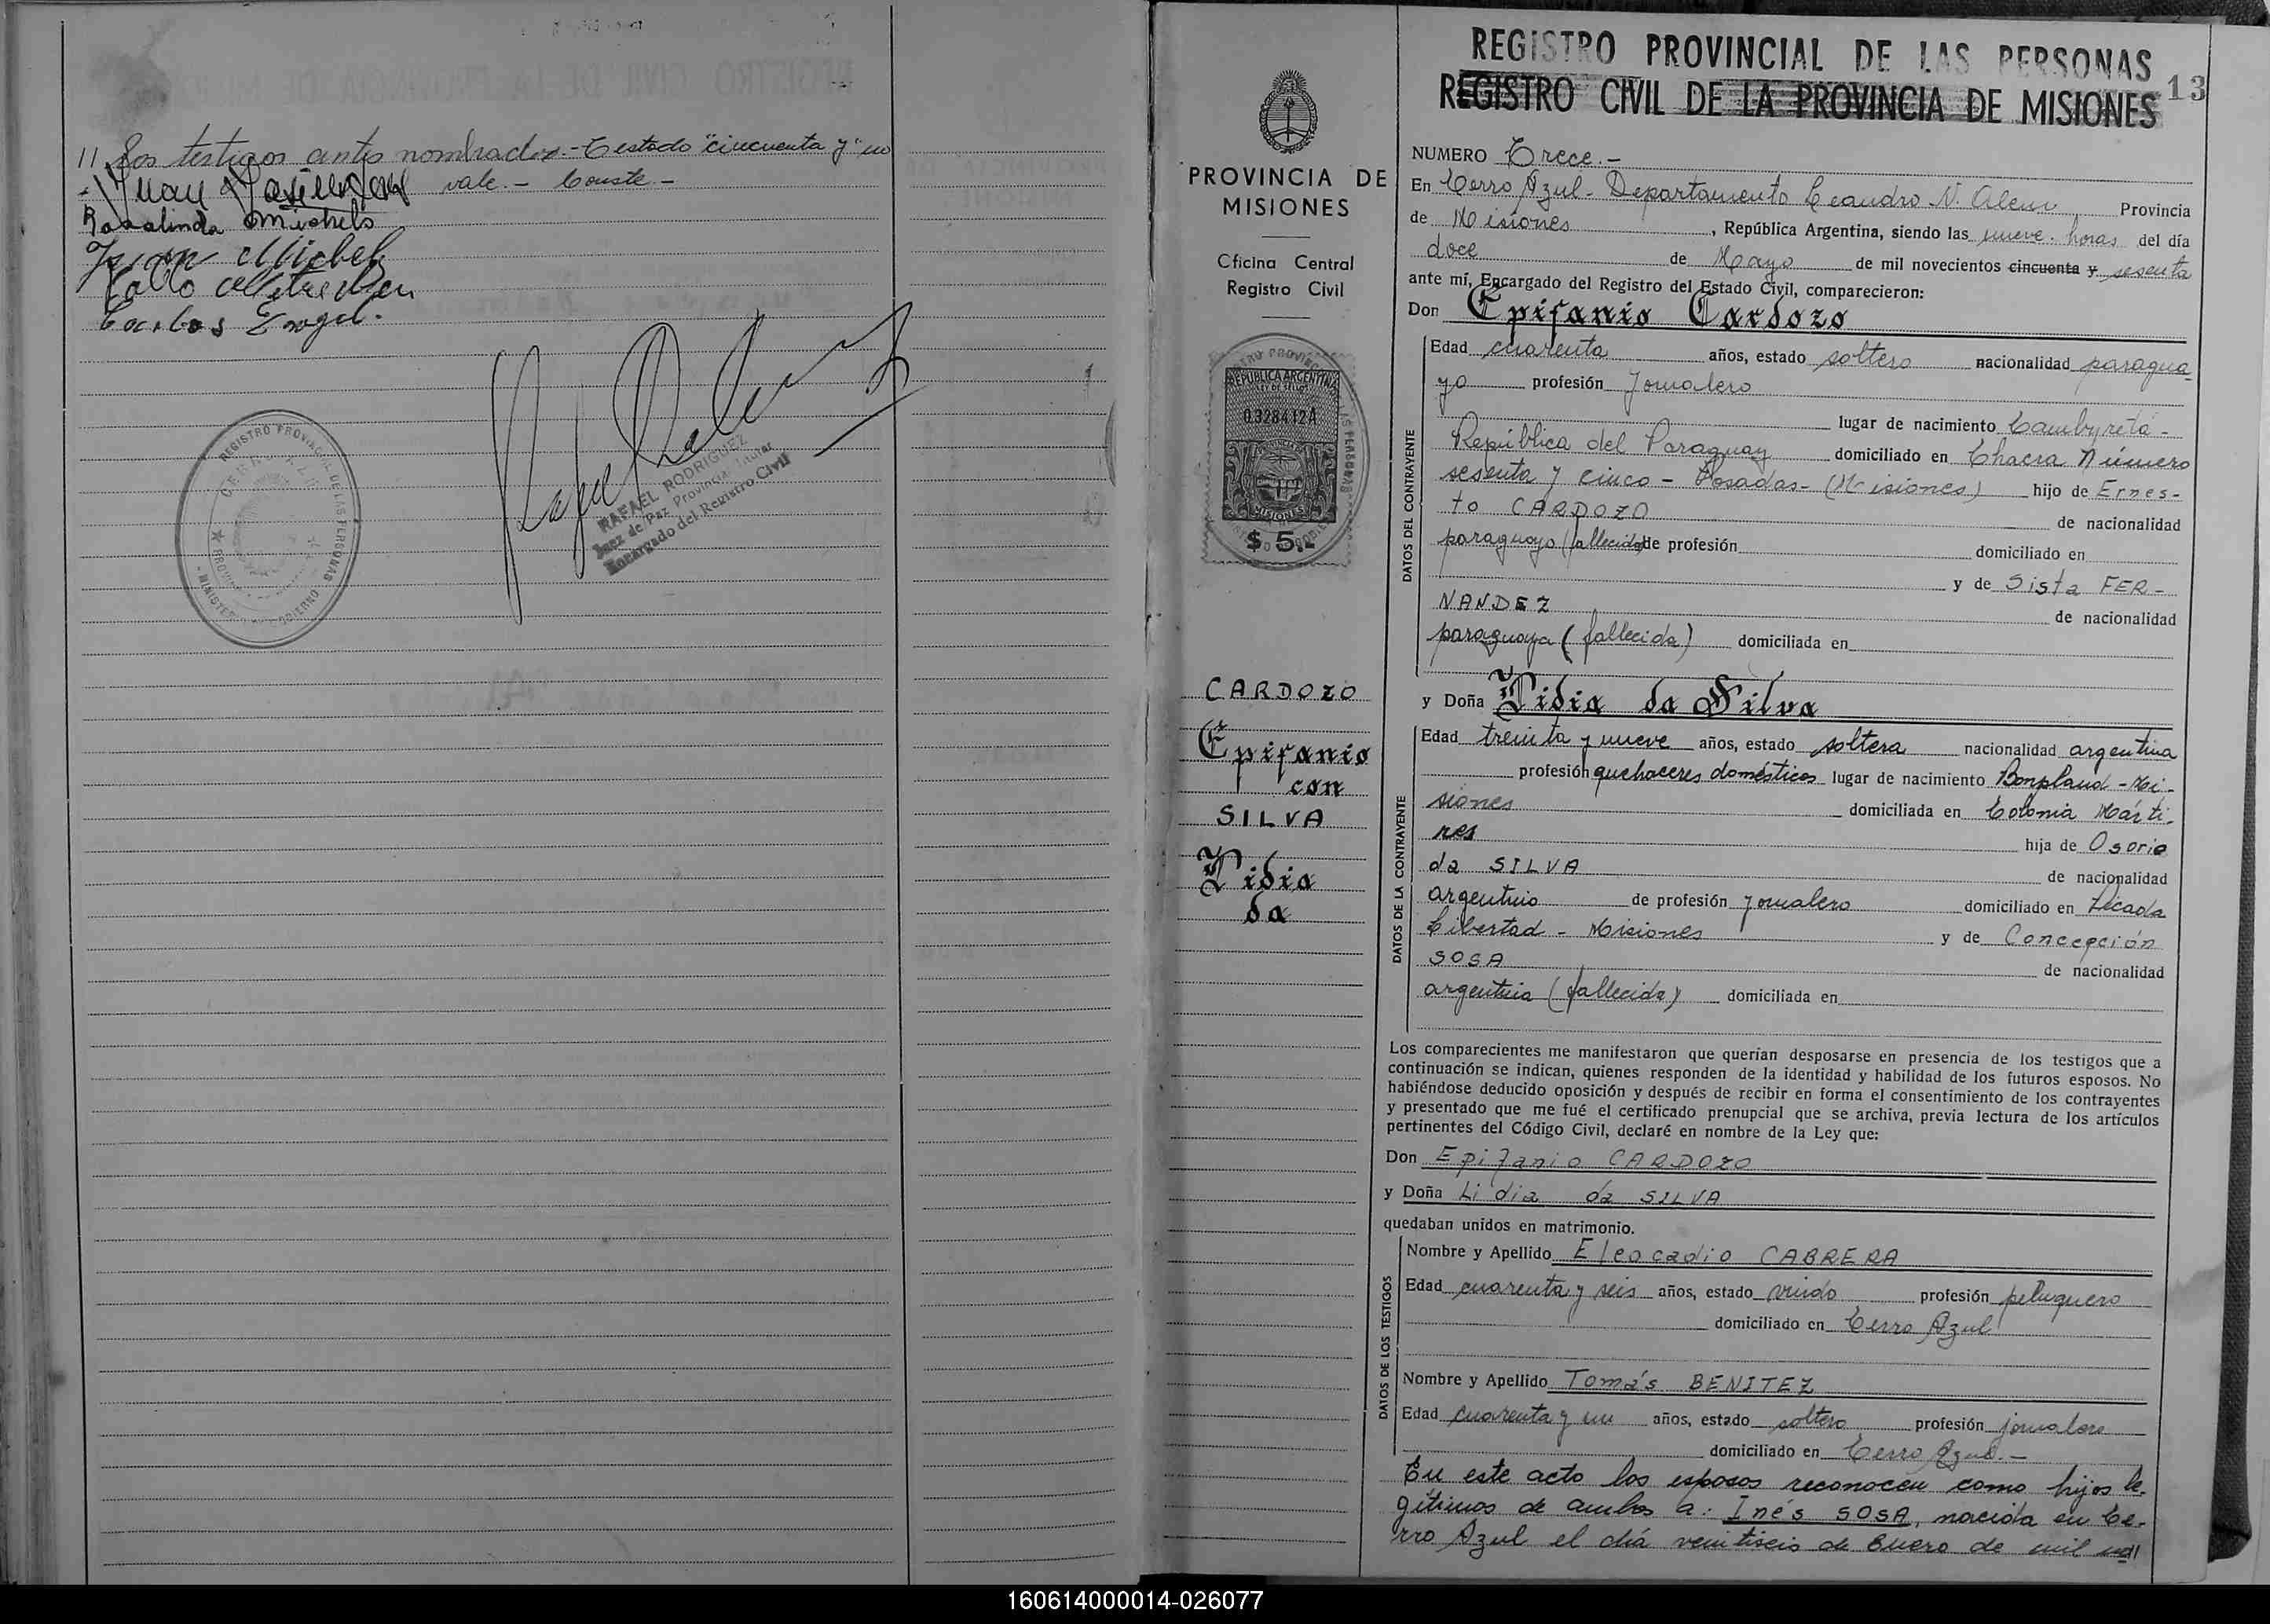 // los testigos antes nombrados.- Testado "cincuenta y" no
vale.- Conste.-
Rosalinda Michels
Juan Michel
Carlos Engel.
RAFAEL RODRIGUEZ
Juez de Paz Provincia Titular
Encargado del Registro Civil
PROVINCIA DE
MISIONES
Oficina Central
Registro Civil
REPUBLICA ARGENTINA
LEY DE SELLOS
0328412A
MISIONES
$ 5.-
CARDOZO
Epifanio
con
SILVA
Lidia
da
REGISTRO PROVINCIAL DE LAS PERSONAS
REGISTRO CIVIL DE LA PROVINCIA DE MISIONES
13
NUMERO Trece.-
En Cerro Azul - Departamento Leandro N. Alem Provincia
de Misiones, República Argentina, siendo las nueve horas del día
doce de Mayo de mil novecientos cincuenta y sesenta
ante mí, Encargado del Registro del Estado Civil, comparecieron:
Don Epifanio Cardozo
DATOS DEL CONTRAYENTE
Edad cuarenta años, estado soltero nacionalidad paragua-
yo profesión Jornalero
lugar de nacimiento Cambyretá-
República del Paraguay domiciliado en Chacra Número
sesenta y cinco - Posadas - (Misiones) hijo de Ernes-
to CARDOZO de nacionalidad
paraguayo (fallecido) de profesión domiciliado en
y de Sista FER-
NANDEZ de nacionalidad
paraguaya (fallecida) domiciliada en
y Doña Lidia da Silva
DATOS DE LA CONTRAYENTE
Edad treinta y nueve años, estado soltera nacionalidad argentina
profesión quehaceres domésticos lugar de nacimiento Bonpland - Mi-
siones domiciliada en Colonia Márti-
res hija de Osorio
da SILVA de nacionalidad
argentino de profesión Jornalero domiciliado en Picada
Libertad - Misiones y de Concepción
SOSA de nacionalidad
argentina (fallecida) domiciliada en
Los comparecientes me manifestaron que querían desposarse en presencia de los testigos que a
continuación se indican, quienes responden de la identidad y habilidad de los futuros esposos. No
habiéndose deducido oposición y después de recibir en forma el consentimiento de los contrayentes
y presentado que me fué el certificado prenupcial que se archiva, previa lectura de los artículos
pertinentes del Código Civil, declaré en nombre de la Ley que:
Don Epifanio CARDOZO
y Doña Lidia da SILVA
quedaban unidos en matrimonio.
DATOS DE LOS TESTIGOS
Nombre y Apellido Eleocadio CABRERA
Edad cuarenta y seis años, estado viudo profesión peluquero
domiciliado en Cerro Azul
Nombre y Apellido Tomás BENITEZ
Edad cuarenta y un años, estado soltero profesión jornalero
domiciliado en Cerro Azul.-
En este acto los esposos reconocen como hijos le-
gítimos de ambos a: Inés SOSA, nacida en Ce-
rro Azul el día veintiseis de Enero de mil no//
160614000014-026077